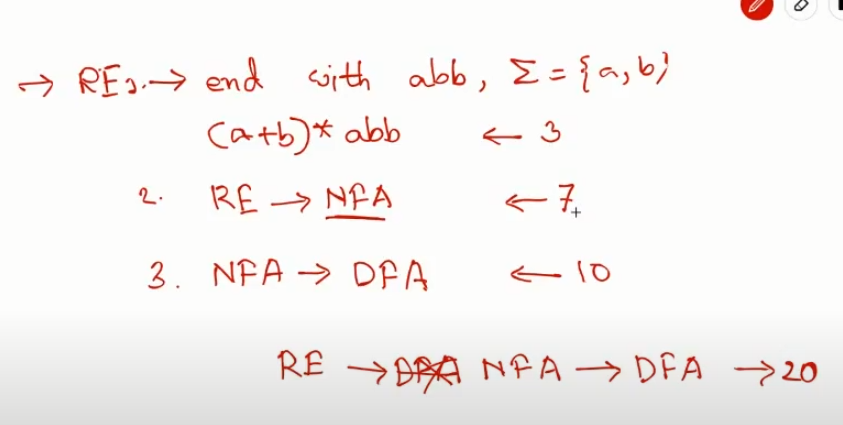 → REs. → end with abb, Σ = {a, b}
(a+b)* abb ← 3
2. RE → NFA ← 7
3. NFA → DFA ← 10
RE → NFA → DFA → 20